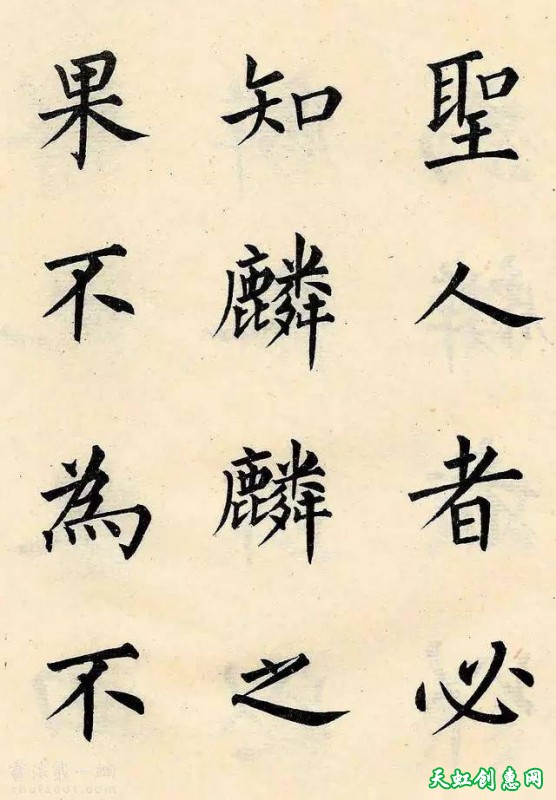 聖人者必
知麟麟之
果不為不
天虹创惠网